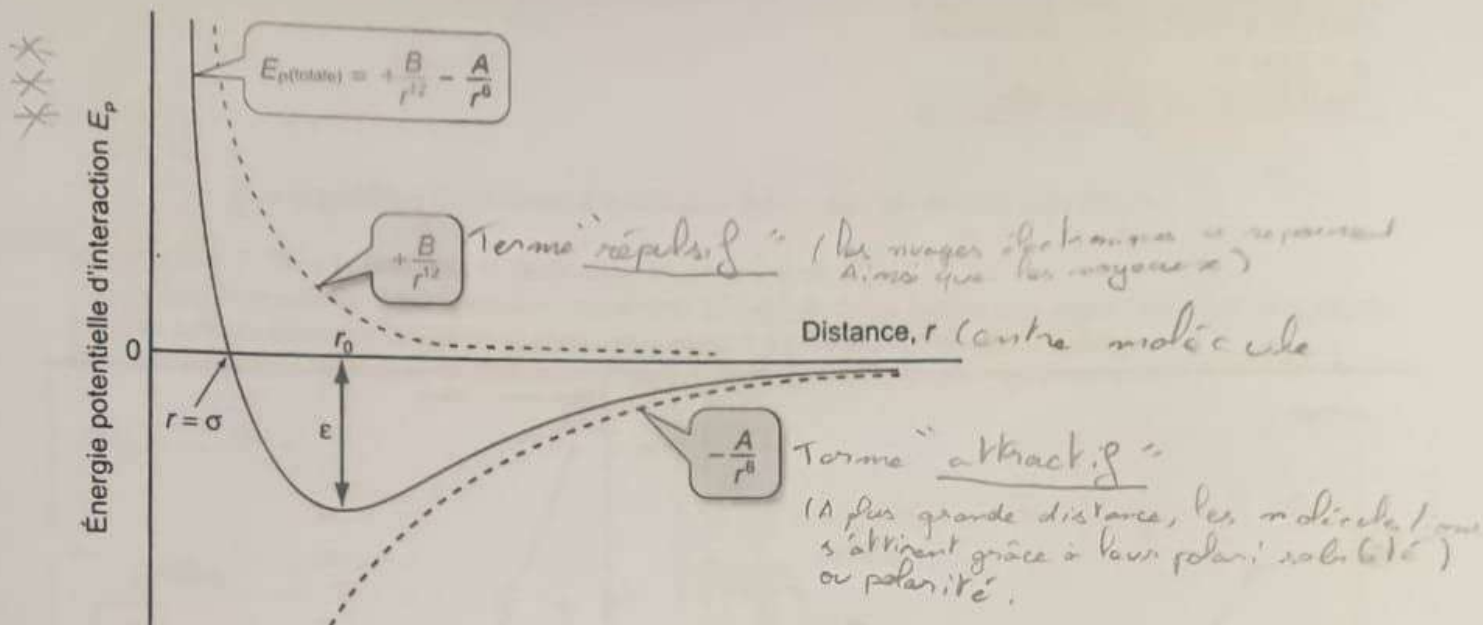 Énergie potentielle d'interaction E_p
E_p(totale) = + B/r^12 - A/r^6
+ B/r^12
Terme "répulsif" (les nuages électroniques se repoussent
Ainsi que les noyaux)
0
r_0
Distance, r (entre molécule
r = σ
ε
- A/r^6
Terme "attractif"
(A plus grande distance, les molécules
s'attirent grâce à leur polarisabilité)
ou polarité.